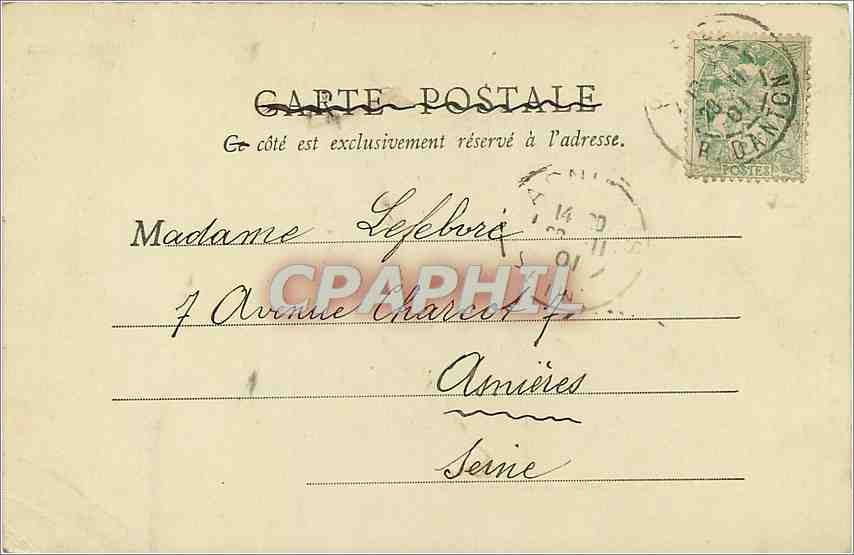 CARTE POSTALE
Ce côté est exclusivement réservé à l'adresse.
R. DANTON
20 11
01
POSTES
14
11
01
Madame Lefebvre
CPAPHIL
7 Avenue Charcot 7.
Asnières
Seine